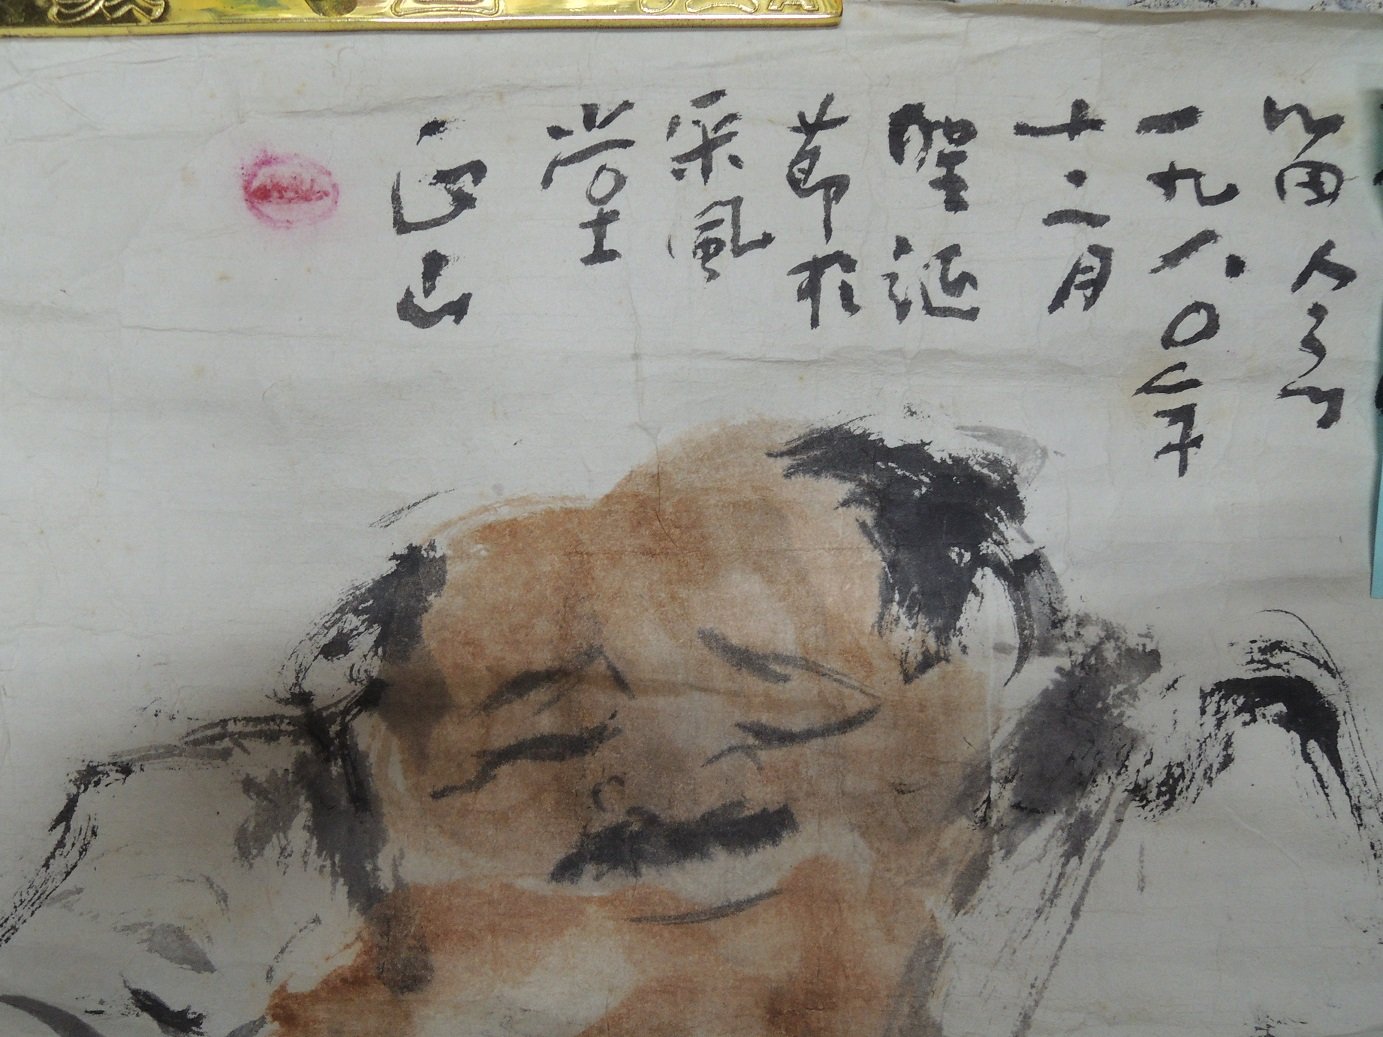 笛人
一九八〇年
十二月
聖誕
節於
采風
堂
正山